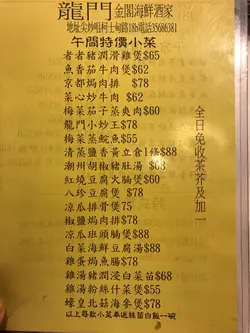 龍門金閣海鮮酒家
地址尖沙咀柯士甸路18b電話35686381
午間特價小菜
者者豬潤滑雞煲$65
魚香茄牛肉煲$62
京都焗肉排 $78
菜心炒牛肉 $62
梅菜茄子蒸爽肉$60
龍門小炒王$78
梅菜蒸鯇魚$55
清蒸鹽香黃立倉1條$88
潮州胡椒豬肚湯 $68
紅燒豆腐火腩煲$60
八珍豆腐煲 $78
涼瓜排骨煲75
椒鹽焗肉排$78
涼瓜班頭腩煲$88
白菜海鮮豆腐湯$88
雞蛋焗魚腸$78
雞湯豬潤浸白菜苗$68
雞湯粉絲什菜煲$55
蠔皇北菇海參煲$78
以上每款小菜奉送絲苗白飯一碗
全日免收茶芥及加一